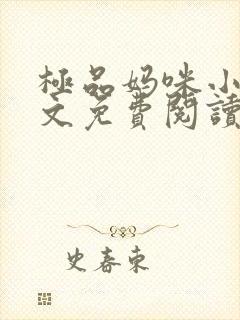 極品妈咪小
文免費閱讀
史春東